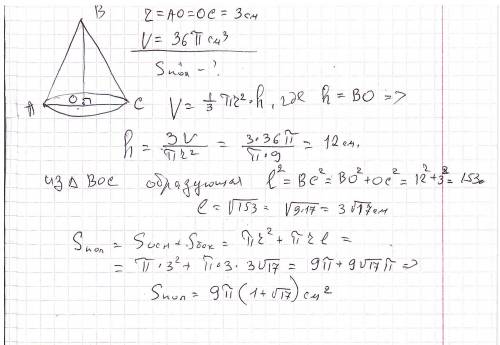 B
r = AO = OC = 3 см
V = 36π см³
Sпол - ?
A O C
V = 1/3 πr²·h, где h = BO =>
h = 3V/πr² = 3·36π/π·9 = 12 см.
из △ BOC образующая l² = BC² = BO² + OC² = 12² + 3² = 153
l = √153 = √9·17 = 3√17 см
Sпол = Sосн + Sбок = πr² + πrl =
= π·3² + π·3·3√17 = 9π + 9√17π =>
Sпол = 9π(1+√17) см²